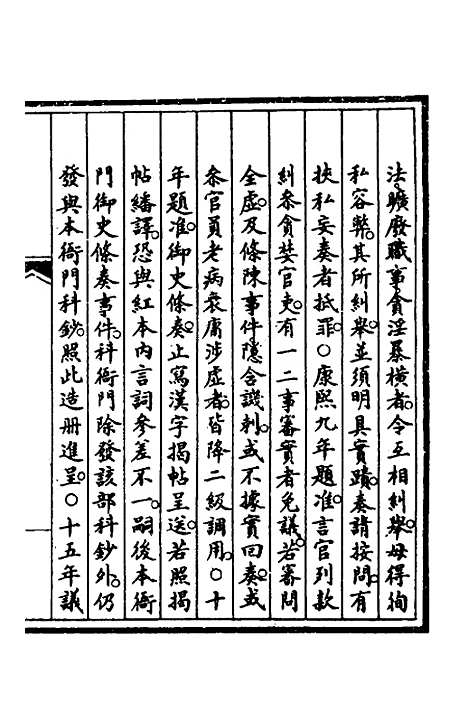 法曠廢職事貪淫暴横者令互相糾舉毋得徇
私容弊其所糾舉並須明具實蹟奏請按問有
挾私妄奏者抵罪○康熙九年題准言官列款
糾叅貪婪官吏有一二事審實者免議若審問
全虛及條陳事件隱含譏刺或不據實回奏或
叅官員老病衰庸涉虛者皆降二級調用○十
年題准御史條奏止寫漢字揭帖呈送若照揭
帖繙譯恐與紅本內言詞參差不一嗣後本衙
門御史條奏事件科衙門除發該部科鈔外仍
發與本衙門科鈔照此造册進呈○十五年議